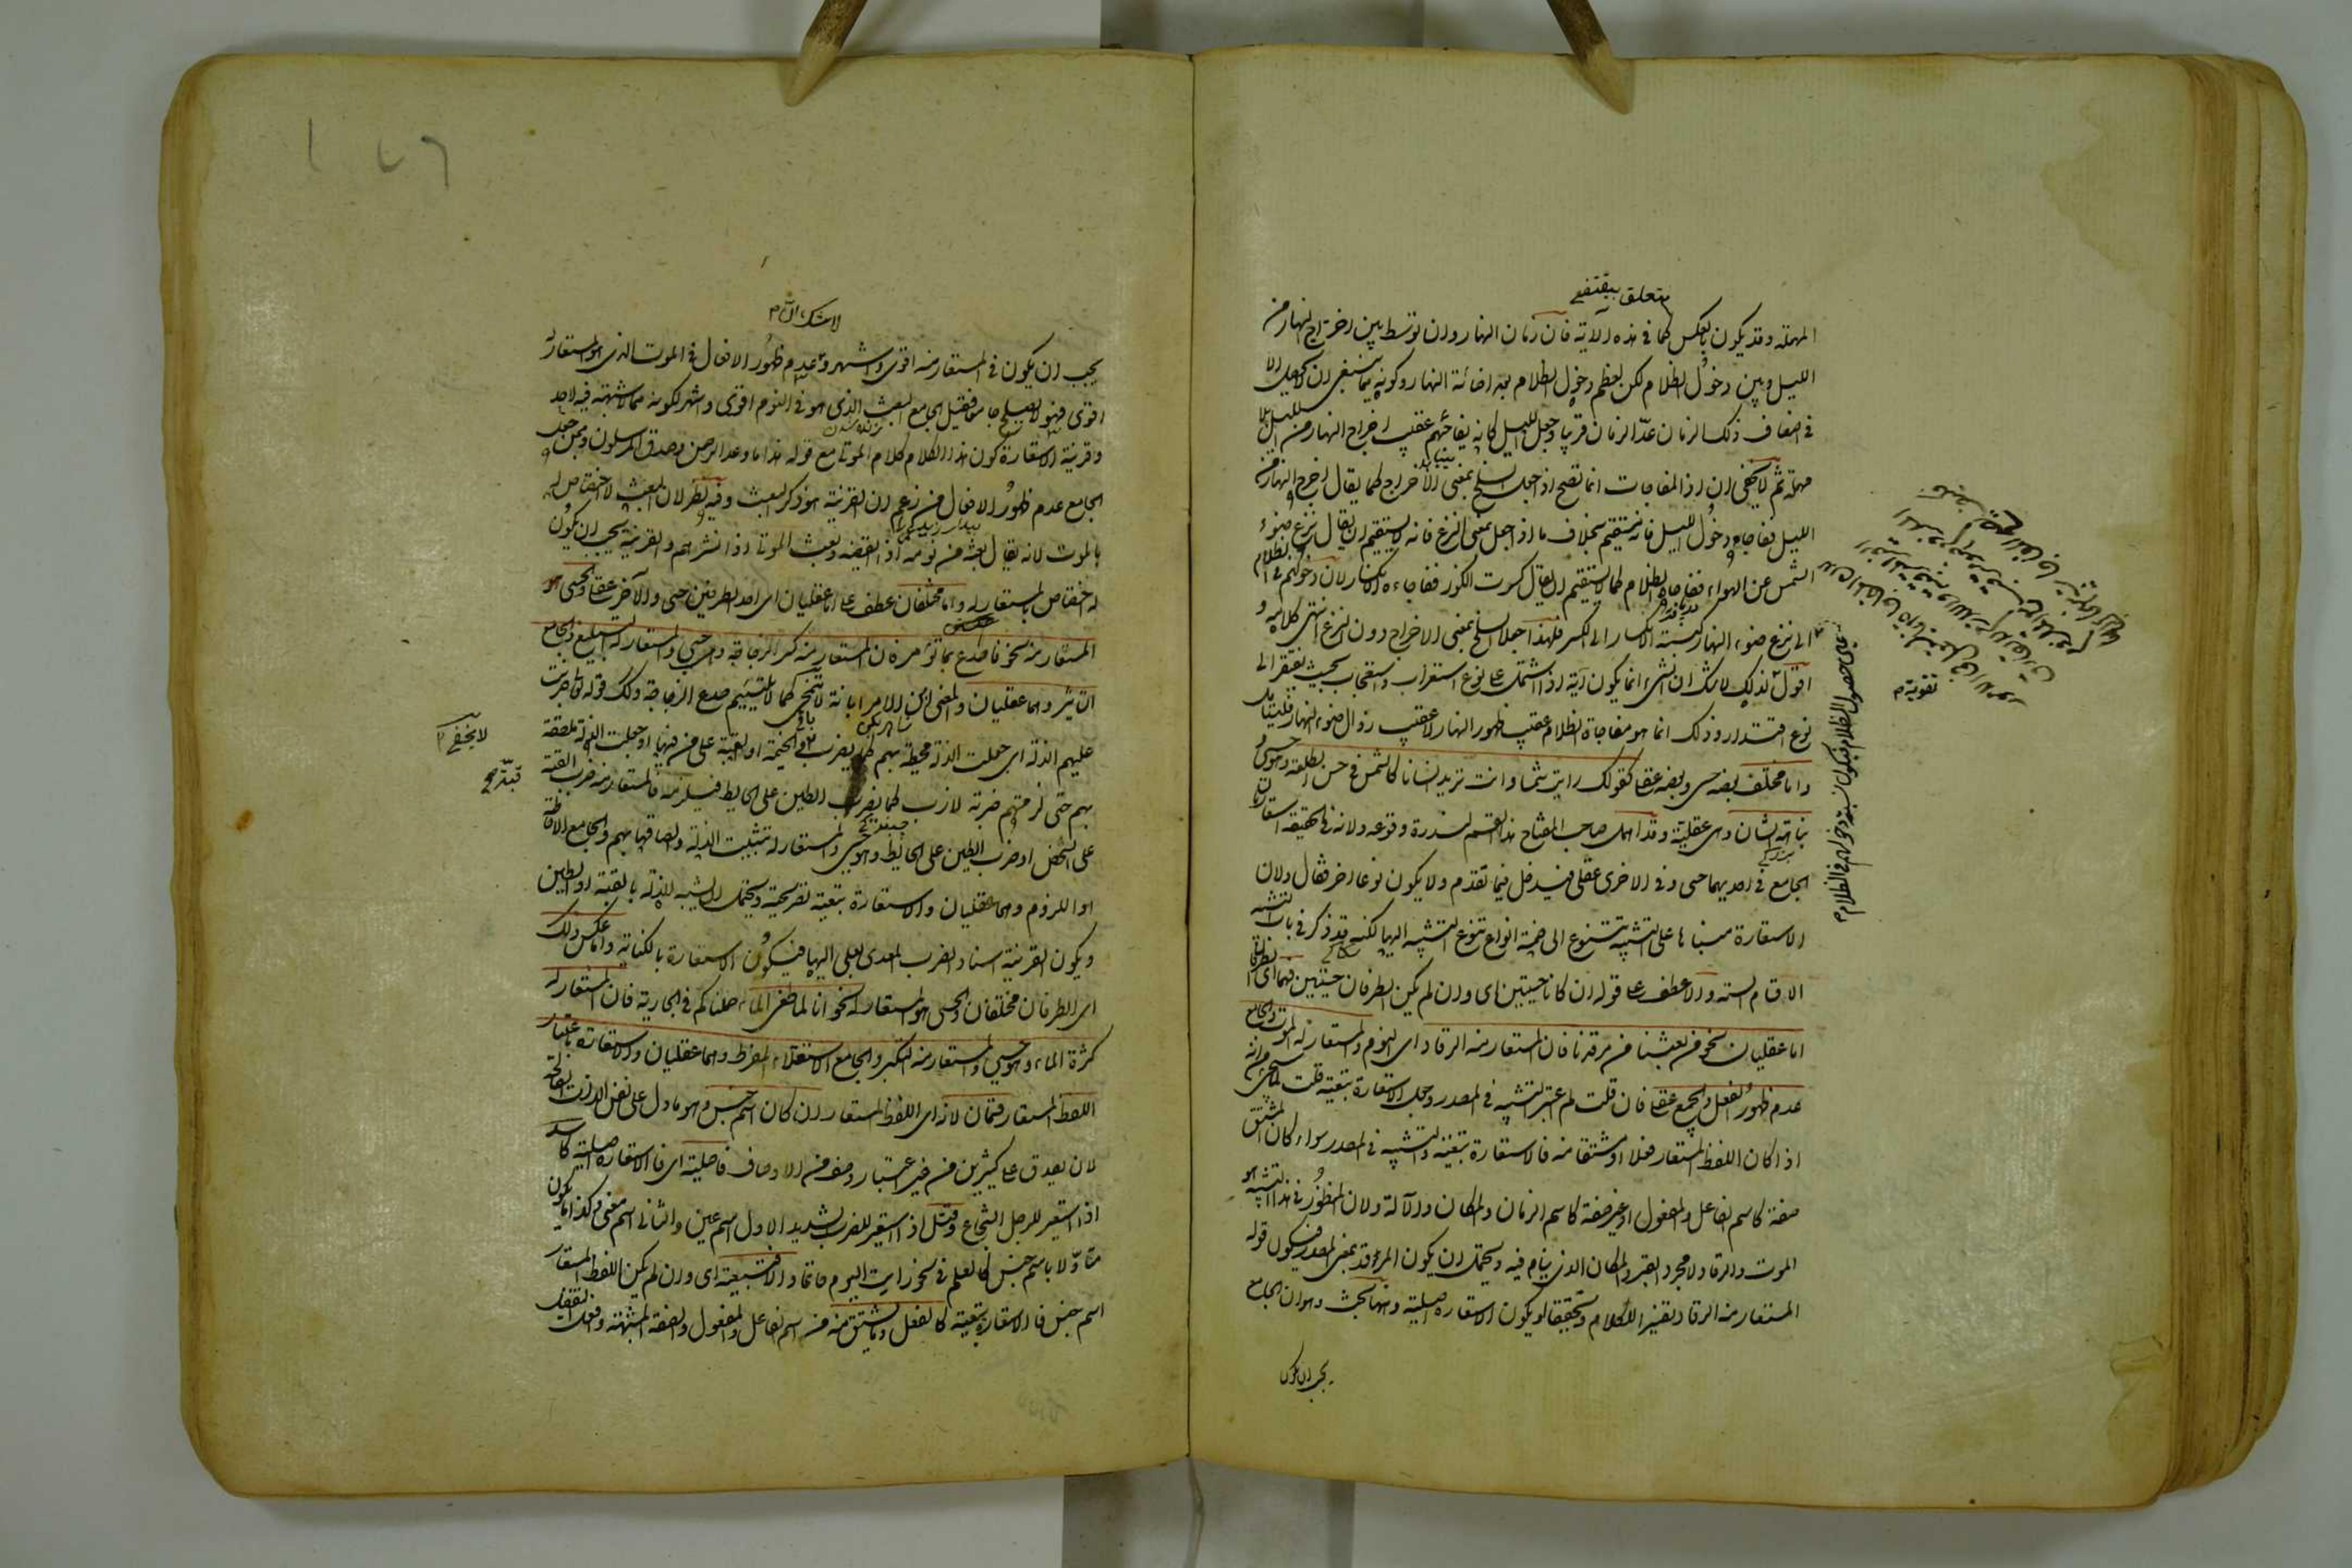 متعلق بيقتضى
المهملة وقد يكون بالعكس كما فى هذه الآية فان زمان النهار وان توسط بين اخراج النهار من
الليل وبين دخول الظلام لكن لعظم دخول الظلام بعد اضائة النهار وكونه مما ينبغى ان لا يحصل الا
فى اضعاف ذلك الزمان عدّ الزمان قريبا وجعل الليل كانه يفاجئهم عقيب اخراج النهار من الليل بلا
مهلة ثم لا يخفى ان اذا المفاجات انما تصح اذا جعل السلخ بمعنى الاخراج كما يقال اخرج النهار من
الليل ففاجاه دخول الليل فانه يستقيم بخلاف ما اذا جعل بمعنى النزع فانه لا يستقيم ان يقال نزع ضوء
الشمس عن الهواء ففاجاه الظلام كما لا يستقيم ان يقال كسرت الكوز ففاجاءه الانكسار لان دخولهم فى الظلام
الى نزع ضوء النهار كنسبة الانكسار الى الكسر فلهذا جعلا السلخ بمعنى الاخراج دون النزع انتهى كلامه و
اقول لذلك لا شك ان الشىء انما يكون آية اذا اشتمل على نوع استغراب واستعجاب بحيث يفتقر الى
نوع اقتدار وذلك انما هو مفاجاة الظلام عقيب ظهور النهار لا عقيب زوال ضوء النهار فليتأمل
واما مختلف بعضه حسى وبعضه عقلى كقولك رايت شمسا وانت تريد انسانا كالشمس فى حسن الطلعة وهو حسى و
نباهة الشان وهى عقلية وقد اهمل صاحب المفتاح هذا القسم لندرة وقوعه ولانه فى الحقيقة استعارتان
الجامع فى احديهما حسى وفى الاخرى عقلى فيدخل فيما تقدم ولا يكون نوعا اخر فقال ولان
الاستعارة مبناها على التشبيه تتنوع الى خمسة انواع تنوع التشبيه اليها لكنه قد ذكر فى باب التشبيه
الاقسام الستة والا عطف على قوله ان كانا حسيين اى وان لم يكن الطرفان حسيين فهما اى الطرفان
اما عقليان نحو من بعثنا من مرقدنا فان المستعار منه الرقاد اى النوم والمستعار له الموت والجامع
عدم ظهور الفعل والجميع عقلى فان قلت لم اعتبر التشبيه فى المصدر وجعل الاستعارة تبعية قلت لما سيجىء من انه
اذا كان اللفظ المستعار فعلا او مشتقا منه فالاستعارة تبعية والتشبيه فى المصدر سواء كان المشتق
صفة كاسم الفاعل والمفعول او غير صفة كاسم الزمان والمكان والآلة ولان المنظور فى هذا التشبيه هو
الموت والرقاد لا مجرد القبر والمكان الذى ينام فيه ويحتمل ان يكون المرقد بمعنى المصدر فيكون قوله
المستعار منه الرقاد تفسير الكلام وتحقيقا ويكون الاستعارة اصلية وههنا بحث وهو ان الجامع
يجب ان يكون
على حصول الظلام فيكون نسبة دخولهم فى الظلام
تقوية م
لا شك ان م
يجب ان يكون فى المستعار منه اقوى واشهر وعدم ظهور الافعال فى الموت الذى هو المستعار له
اقوى فهو لا يصلح جامعا فقيل الجامع البعث الذى هو فى النوم اقوى واشهر لكونه مما لا شبهة فيه لاحد
وقرينة الاستعارة كون هذا الكلام كلام الموتى مع قوله هذا ما وعد الرحمن وصدق المرسلون وممن جعل
الجامع عدم ظهور الافعال من زعم ان القرينة هو ذكر البعث وفيه نظر لان البعث لا اختصاص له
بالموت لانه يقال بعثه من نومه اذا ايقظه وبعث الموتى اذا نشرهم والقرينة يجب ان يكون
له اختصاص بالمستعار له واما مختلفان عطف على اما عقليان اى احد الطرفين حسى والآخر عقلى والحسى هو
المستعار منه نحو فاصدع بما تؤمر فان المستعار منه كسر الزجاجة وهى حسى والمستعار له التبليغ والجامع
التاثير وهما عقليان والمعنى ابن الامر ابانة لا تنمحى كما لا يلتئم صدع الزجاجة وكذلك قوله تعالى ضربت
عليهم الذلة اى جعلت الذلة محيطة بهم كما يضرب الخيمة او القبة على من فيها او جعلت الذلة ملصقة
بهم حتى لزمتهم ضربة لازب كما يضرب الطين على الحايط فيلزمه فالمستعار منه ضرب القبة
على الشخص او ضرب الطين على الحايط وهو حسى والمستعار له تثبيت الذلة والصاقها بهم والجامع الاحاطة
او اللزوم وهما عقليان والاستعارة تبعية تصريحية ويحتمل ان يشبه الذلة بالقبة او الطين
ويكون القرينة اسناد الضرب المعدى بعلى اليها فيكون الاستعارة بالكناية واما عكس ذلك
اى الطرفان مختلفان والحسى هو المستعار له نحو انا لما طغى الماء حملناكم فى الجارية فان المستعار له
كثرة الماء وهو حسى والمستعار منه التكبر والجامع الاستعلاء المفرط وهما عقليان والاستعارة باعتبار
اللفظ المستعار قسمان لانه اى اللفظ المستعار ان كان اسم جنس وهو ما دل على نفس الذات الصالحة
لان يصدق على كثيرين من غير اعتبار وصف من الاوصاف فاصلية اى فالاستعارة اصلية كاسد
اذا استعير للرجل الشجاع وقتل اذا استعير للضرب الشديد الاول اسم عين والثانى اسم معنى وكذا ما يكون
متأوّلا باسم جنس كالعلم فى نحو رايت اليوم حاتما والا فتبعية اى وان لم يكن اللفظ المستعار
اسم جنس فالاستعارة تبعية كالفعل وما يشتق منه من اسم الفاعل والمفعول والصفة المشبهة وافعل التفضيل
لا يخفى م